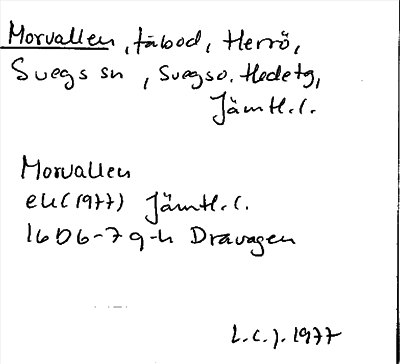 Morvallen, fäbod, Herrö,
Svegs sn, Svegs o. Hedetg,
Jämtl. l.
Morvallen
ek (1977) Jämtl. l.
16D6-7g-h Dravagen
L.C.J. 1977